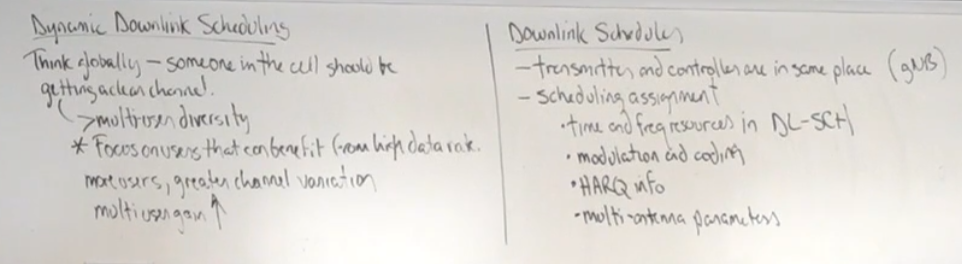 Dynamic Downlink Scheduling
Think globally – someone in the cell should be
getting a clean channel.
↳> multiuser diversity
* Focus on users that can benefit from high data rate.
more users, greater channel variation
multiuser gain ↑
Downlink Scheduler
– transmitter and controller are in same place (gNB)
– scheduling assignment
• time and freq resources in DL-SCH
• modulation and coding
• HARQ info
• multi-antenna parameters